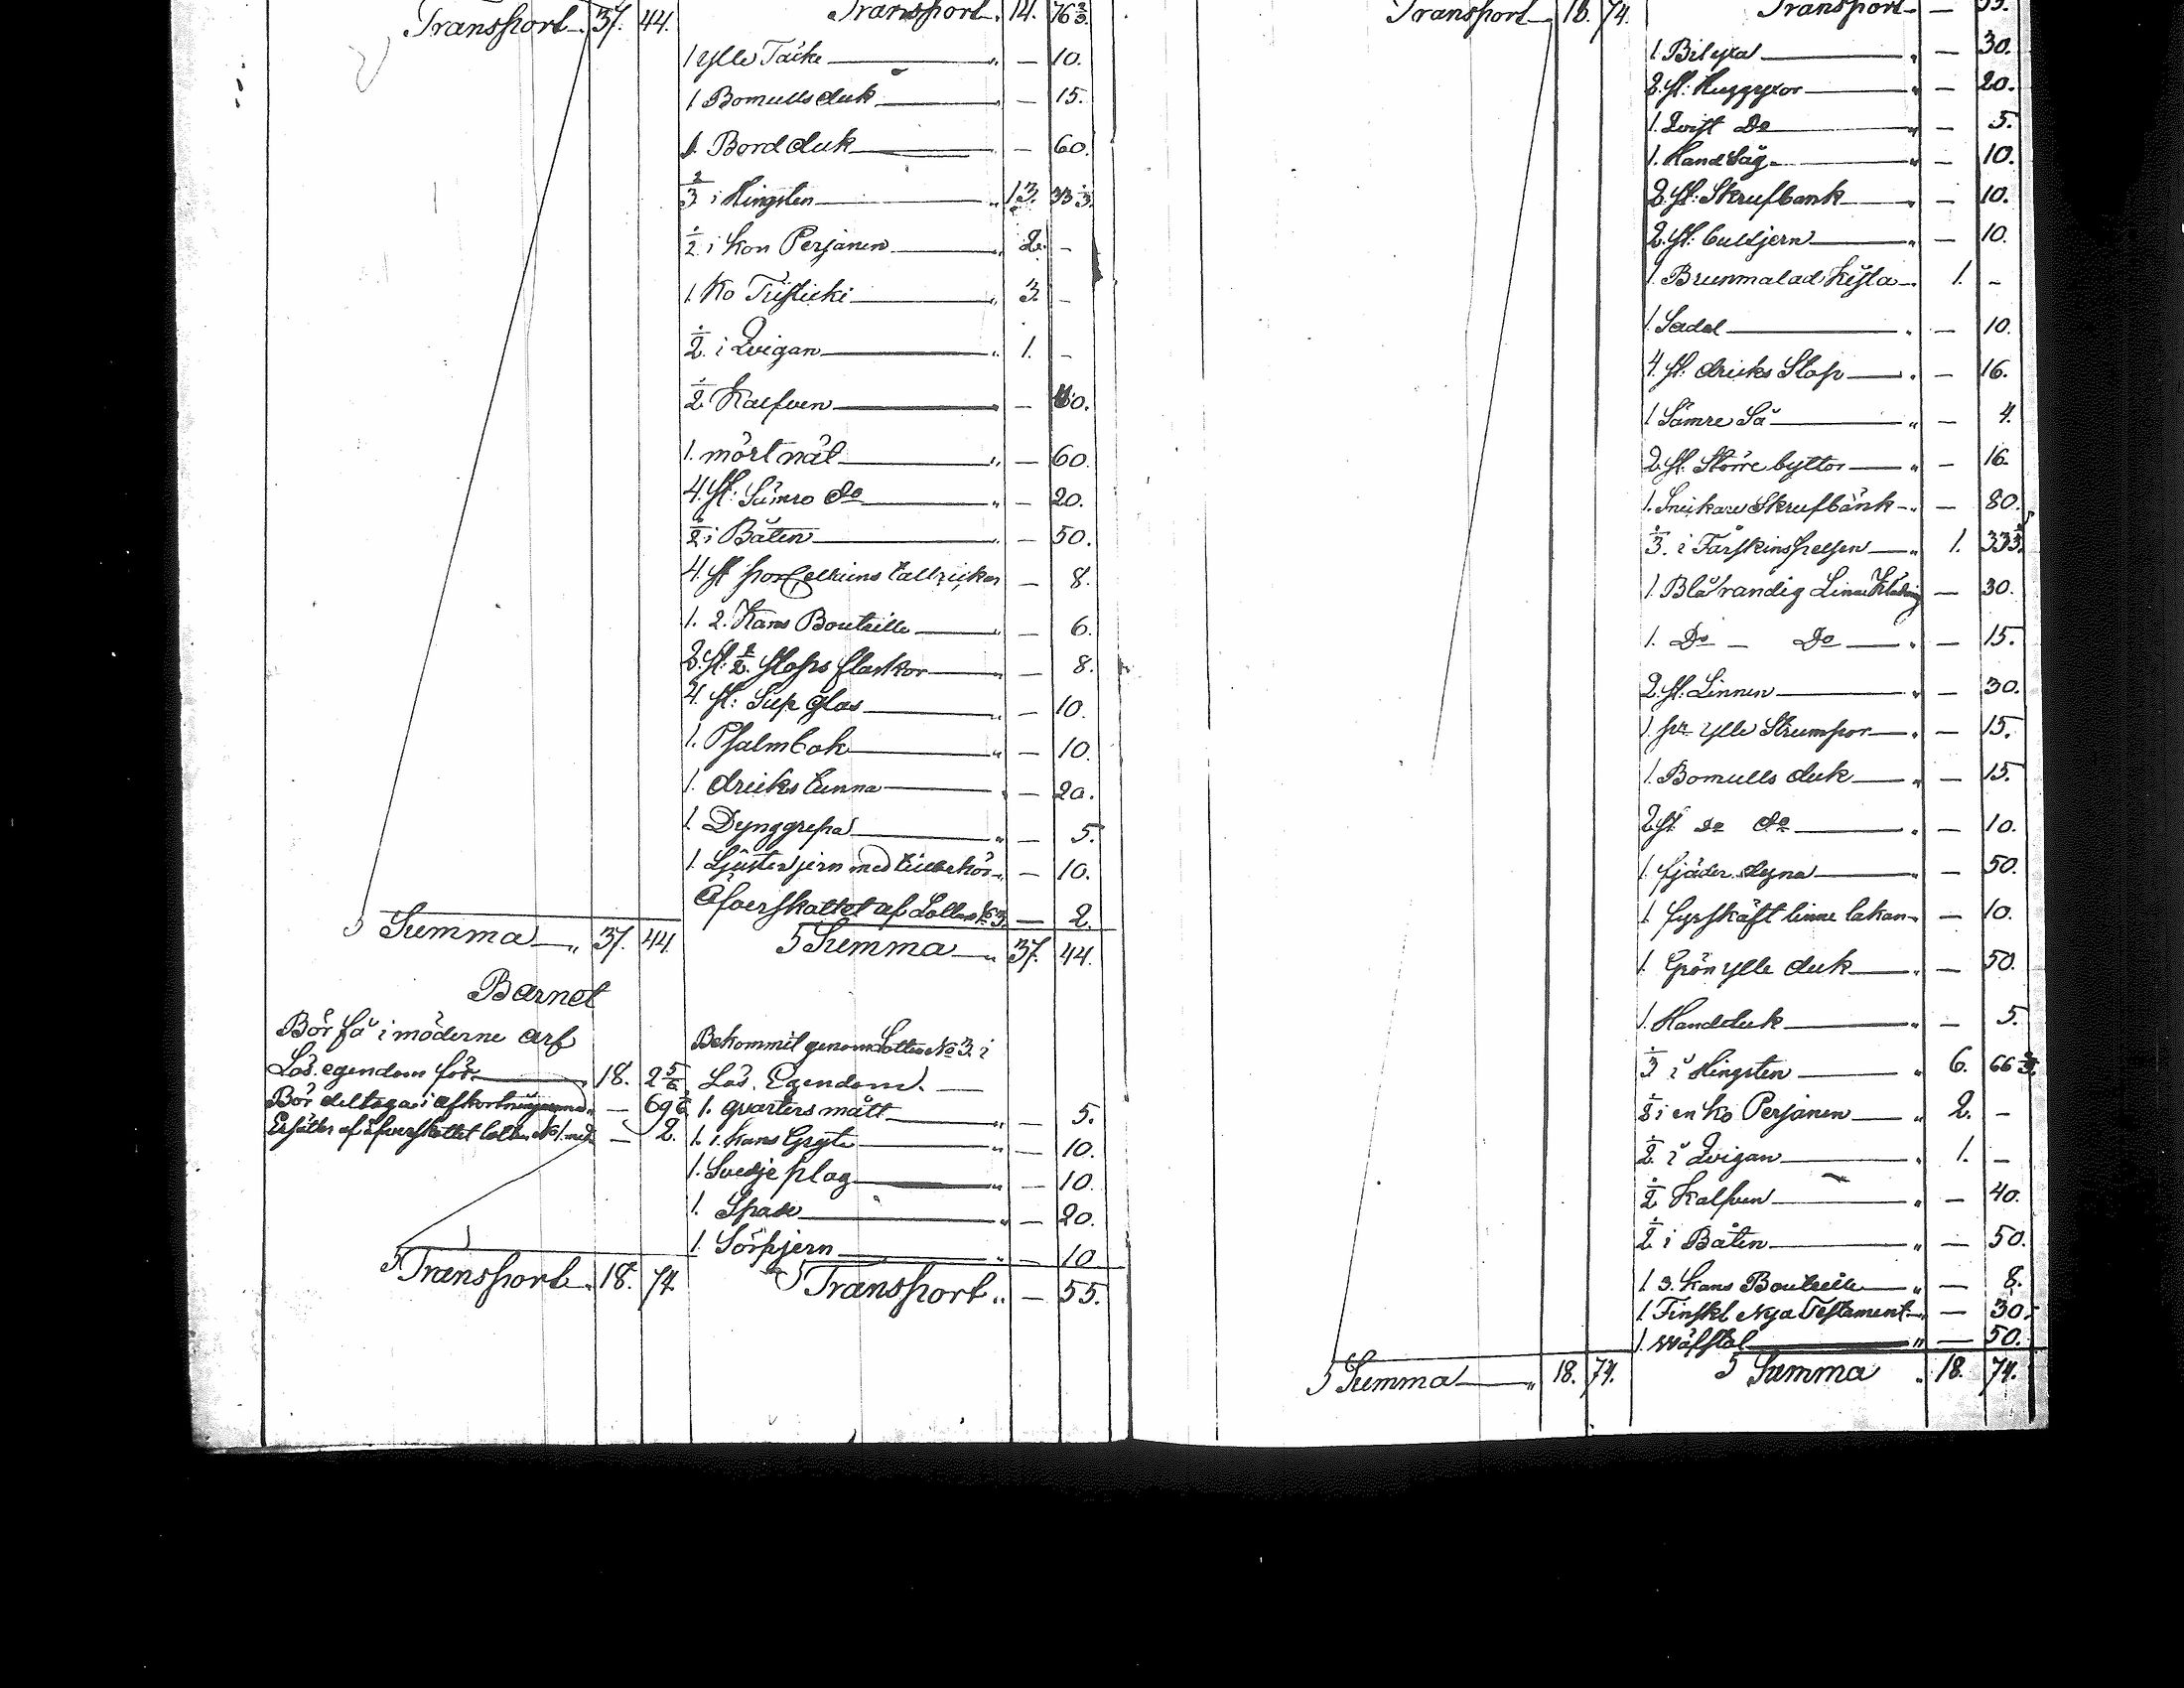 Transport 37. 44.
Transport 14. 76 2/3
1 ylle Täcke " — 10.
1 Bomulls duk " — 15.
1. Bord duk " — 60.
2/3 i Hingsten " 13. 33 1/3.
1/2 i kon Perjanen " 2. –
1. Ko Tusticki " 3. –
1/2 i Qvigan " 1. –
1/2 Kalfven " — 60.
1. mört nät " — 60.
4. st: Sämre do " — 20.
1/2 i Båten " — 50.
4. st porcellains tallrickor — 8.
1. 2. Kans Bouteille " — 6.
2. st: 1/2. stops flaskor " — 8.
4. st: Sup glas " — 10.
1. Psalmbok " — 10.
1. dricks tunna " — 20.
1. Dynggrepa " — 5.
1. Ljusterjern med tillbehör " — 10.
Öfverskottet af Lotten No 3. — 2.
Summa " 37. 44.
Summa " 37. 44.
Barnet
Bör få i möderne arf
Lös. egendom för 18. 2 5/6
Bör deltaga i afkortningarna " — 69 1/6
Ersätter af öfverskottet lotten No 1. med — 2.
Transport " 18. 74.
Bekommit genom Lotten No 3. i
Lös. Egendom. —
1. qvarters mått " — 5.
1. 1. kans Gryta " — 10.
1. Svedje plog " — 10.
1. Spade " — 20.
1. Sörpjern " — 10
Transport " — 55.
Transport 18. 74.
Transport — 55.
1. Bilyxa " — 30.
2. st: Huggyxor " — 20.
1. Qvist Do " — 5.
1. Hand Såg " — 10.
2. st: Skrufbank " — 10.
2. st: bultjern " — 10.
1. Brunmalad Kista 1. –
1. Sadel " — 10.
4. st. dricks Stop " — 16.
1 Sämre Så " — 4.
2. st. Större byttor " — 16.
1. Snickare Skrufbänk " — 80.
1/3. i Fårskinspelsen " 1. 33 1/3.
1. Blå randig Linne Klädning — 30.
1. Do — Do " — 15.
2. st. Linnen " — 30.
1. par ylle Strumpor " — 15.
1. Bomulls duk " — 15.
2 st. do do " — 10.
1. fjäder dyna " — 50.
1. fyrskäft linne lakan " — 10.
1. Grön ylle duk " — 50.
1. Handduk " — 5.
1/3 i Hingsten " 6. 66 2/3.
1/2 i en ko Perjanen " 2. –
1/2 i Qvigan " 1. –
1/2 Kalfven " — 40.
1/2 i Båten " — 50.
1 3. kans Bouteille " — 8.
1. Finskt Nya Testament " — 30.
1. Wäfstol " — 50.
Summa " 18. 74.
Summa " 18. 74.